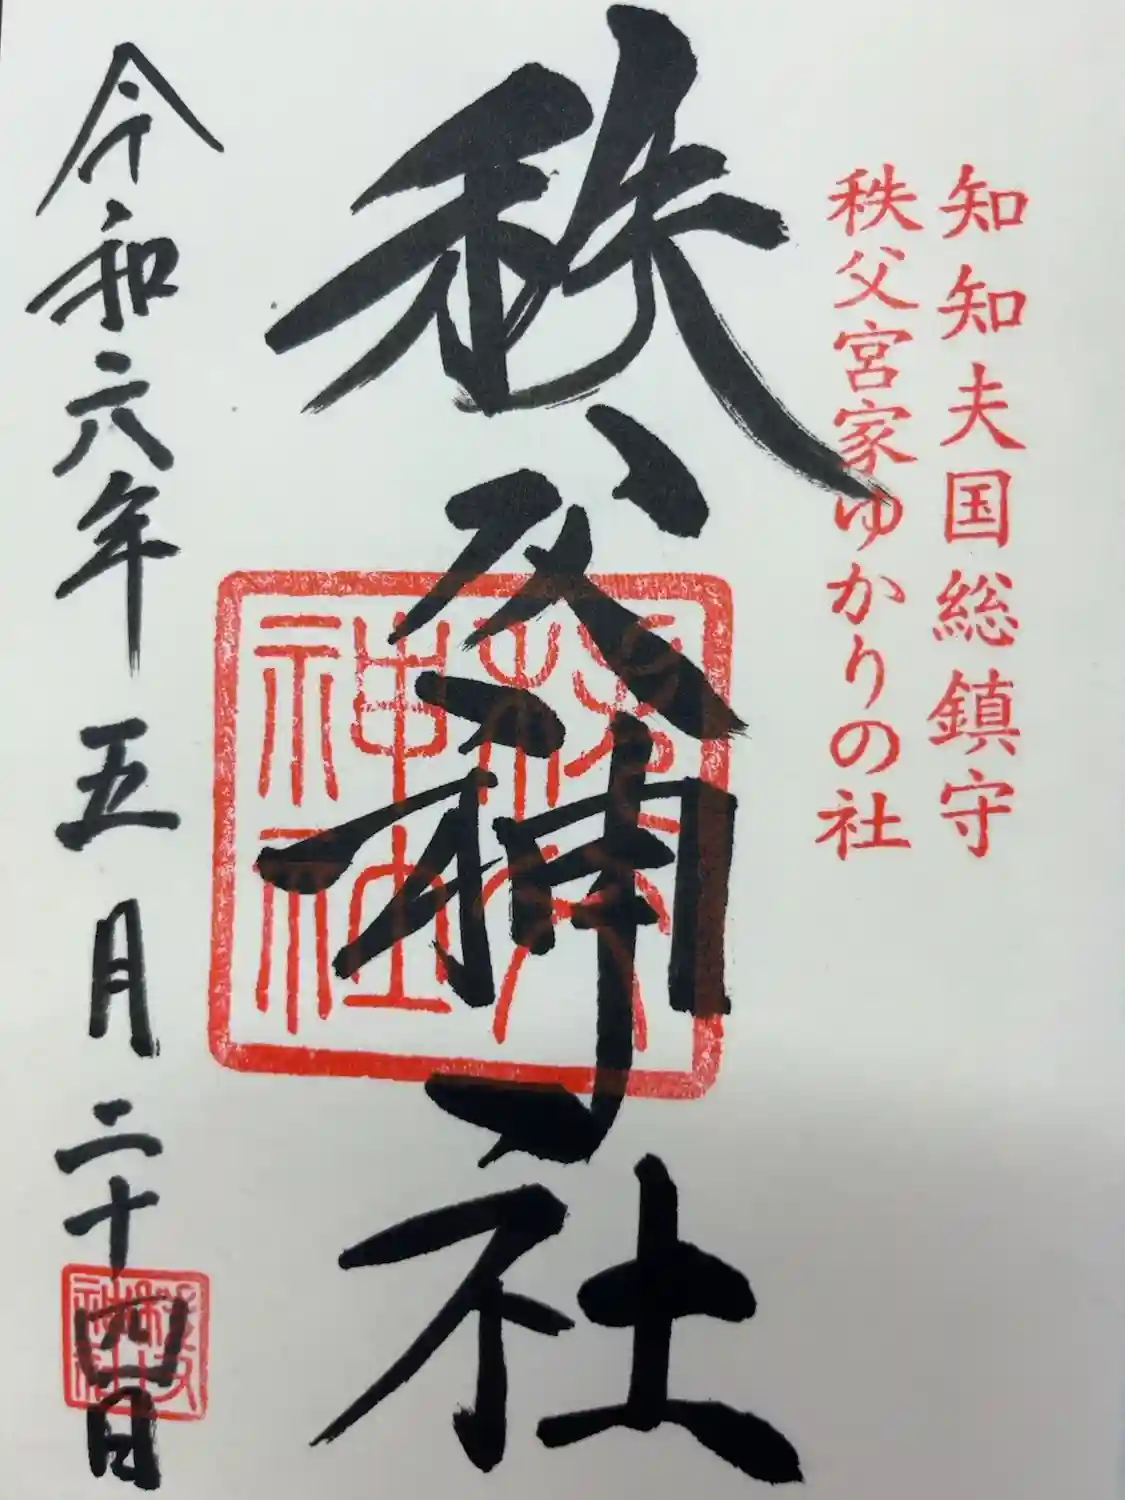 知知夫国総鎮守
秩父宮家ゆかりの社
秩父神社
秩父神社
令和六年 五月二十四日
秩父神社